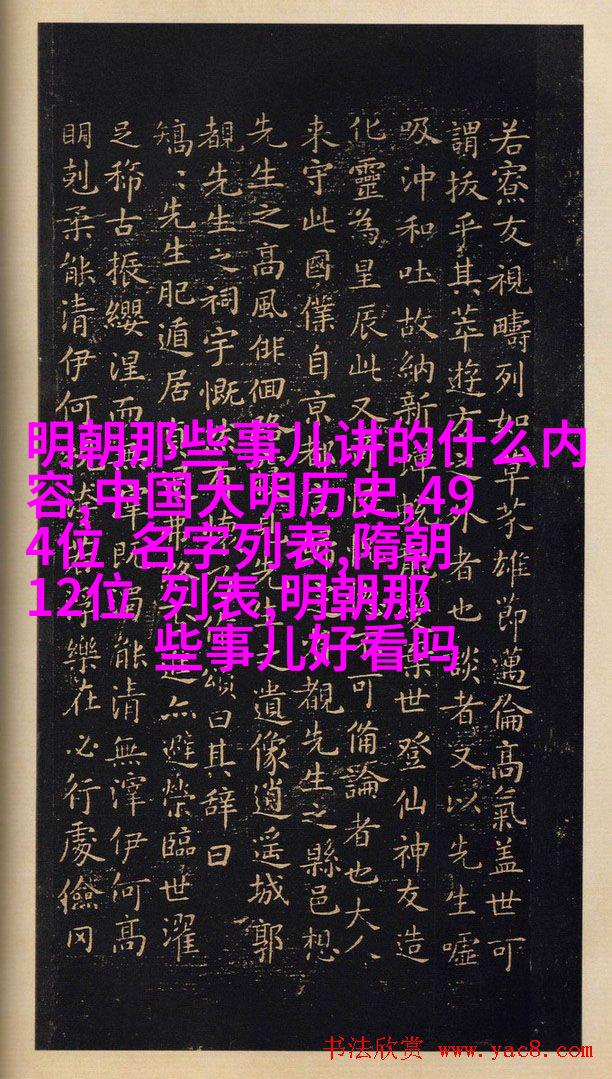 明朝那些事儿讲的什么内
容,中国大明历史,49
4位 名字列表,隋朝
12位 列表,明朝那
些事儿好看吗
若寮友視疇列如草芥雄節邁倫高氣盖世可
謂拔乎其萃遊方之外者也談者又以先生噓
吸沖和吐故納新棄世登仙神友造
化靈為星辰此又可備論者也大人
来守此國僕自京覩先生之縣邑想
先生之高風徘徊先生之遺像逍遥城郭
覩先生之祠宇慨頌曰其辞曰
矯〻先生肥遁居進亦避榮臨世濯
足稀古振纓涅而既濁能清無滓伊何高
明剋柔能清伊何樂在必行處儉罔
书法欣赏 www.yac8.com